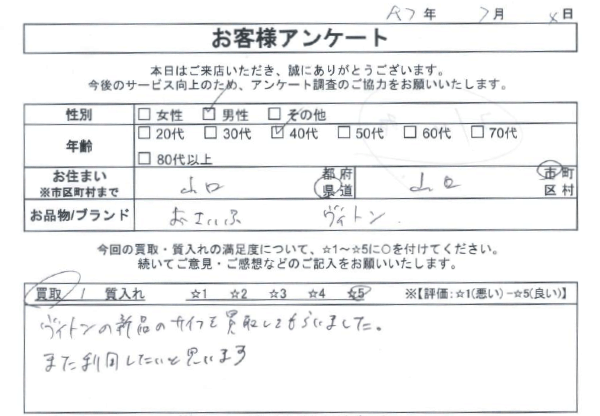 R7年 7月 日
お客様アンケート
本日はご来店いただき、誠にありがとうございます。
今後のサービス向上のため、アンケート調査のご協力をお願いいたします。
性別 □女性 ☑男性 □その他
年齢 □20代 □30代 ☑40代 □50代 □60代 □70代
□80代以上
お住まい ※市区町村まで 山口 都府県道 山口 市町区村
お品物/ブランド おさいふ ヴィトン.
今回の買取・質入れの満足度について、☆1～☆5に○を付けてください。
続いてご意見・ご感想などのご記入をお願いいたします。
買取 / 質入れ ☆1 ☆2 ☆3 ☆4 ☆5 ※【評価:☆1(悪い)－☆5(良い)】
ヴィトンの新品のサイフを買取してもらいました。
また利用したいと思います